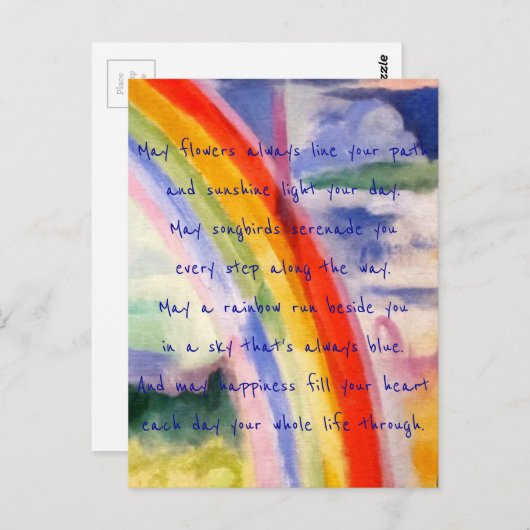 Place
mp
zzle
May flowers always line your path
and sunshine light your day.
May songbirds serenade you
every step along the way.
May a rainbow run beside you
in a sky that's always blue.
And may happiness fill your heart
each day your whole life through.